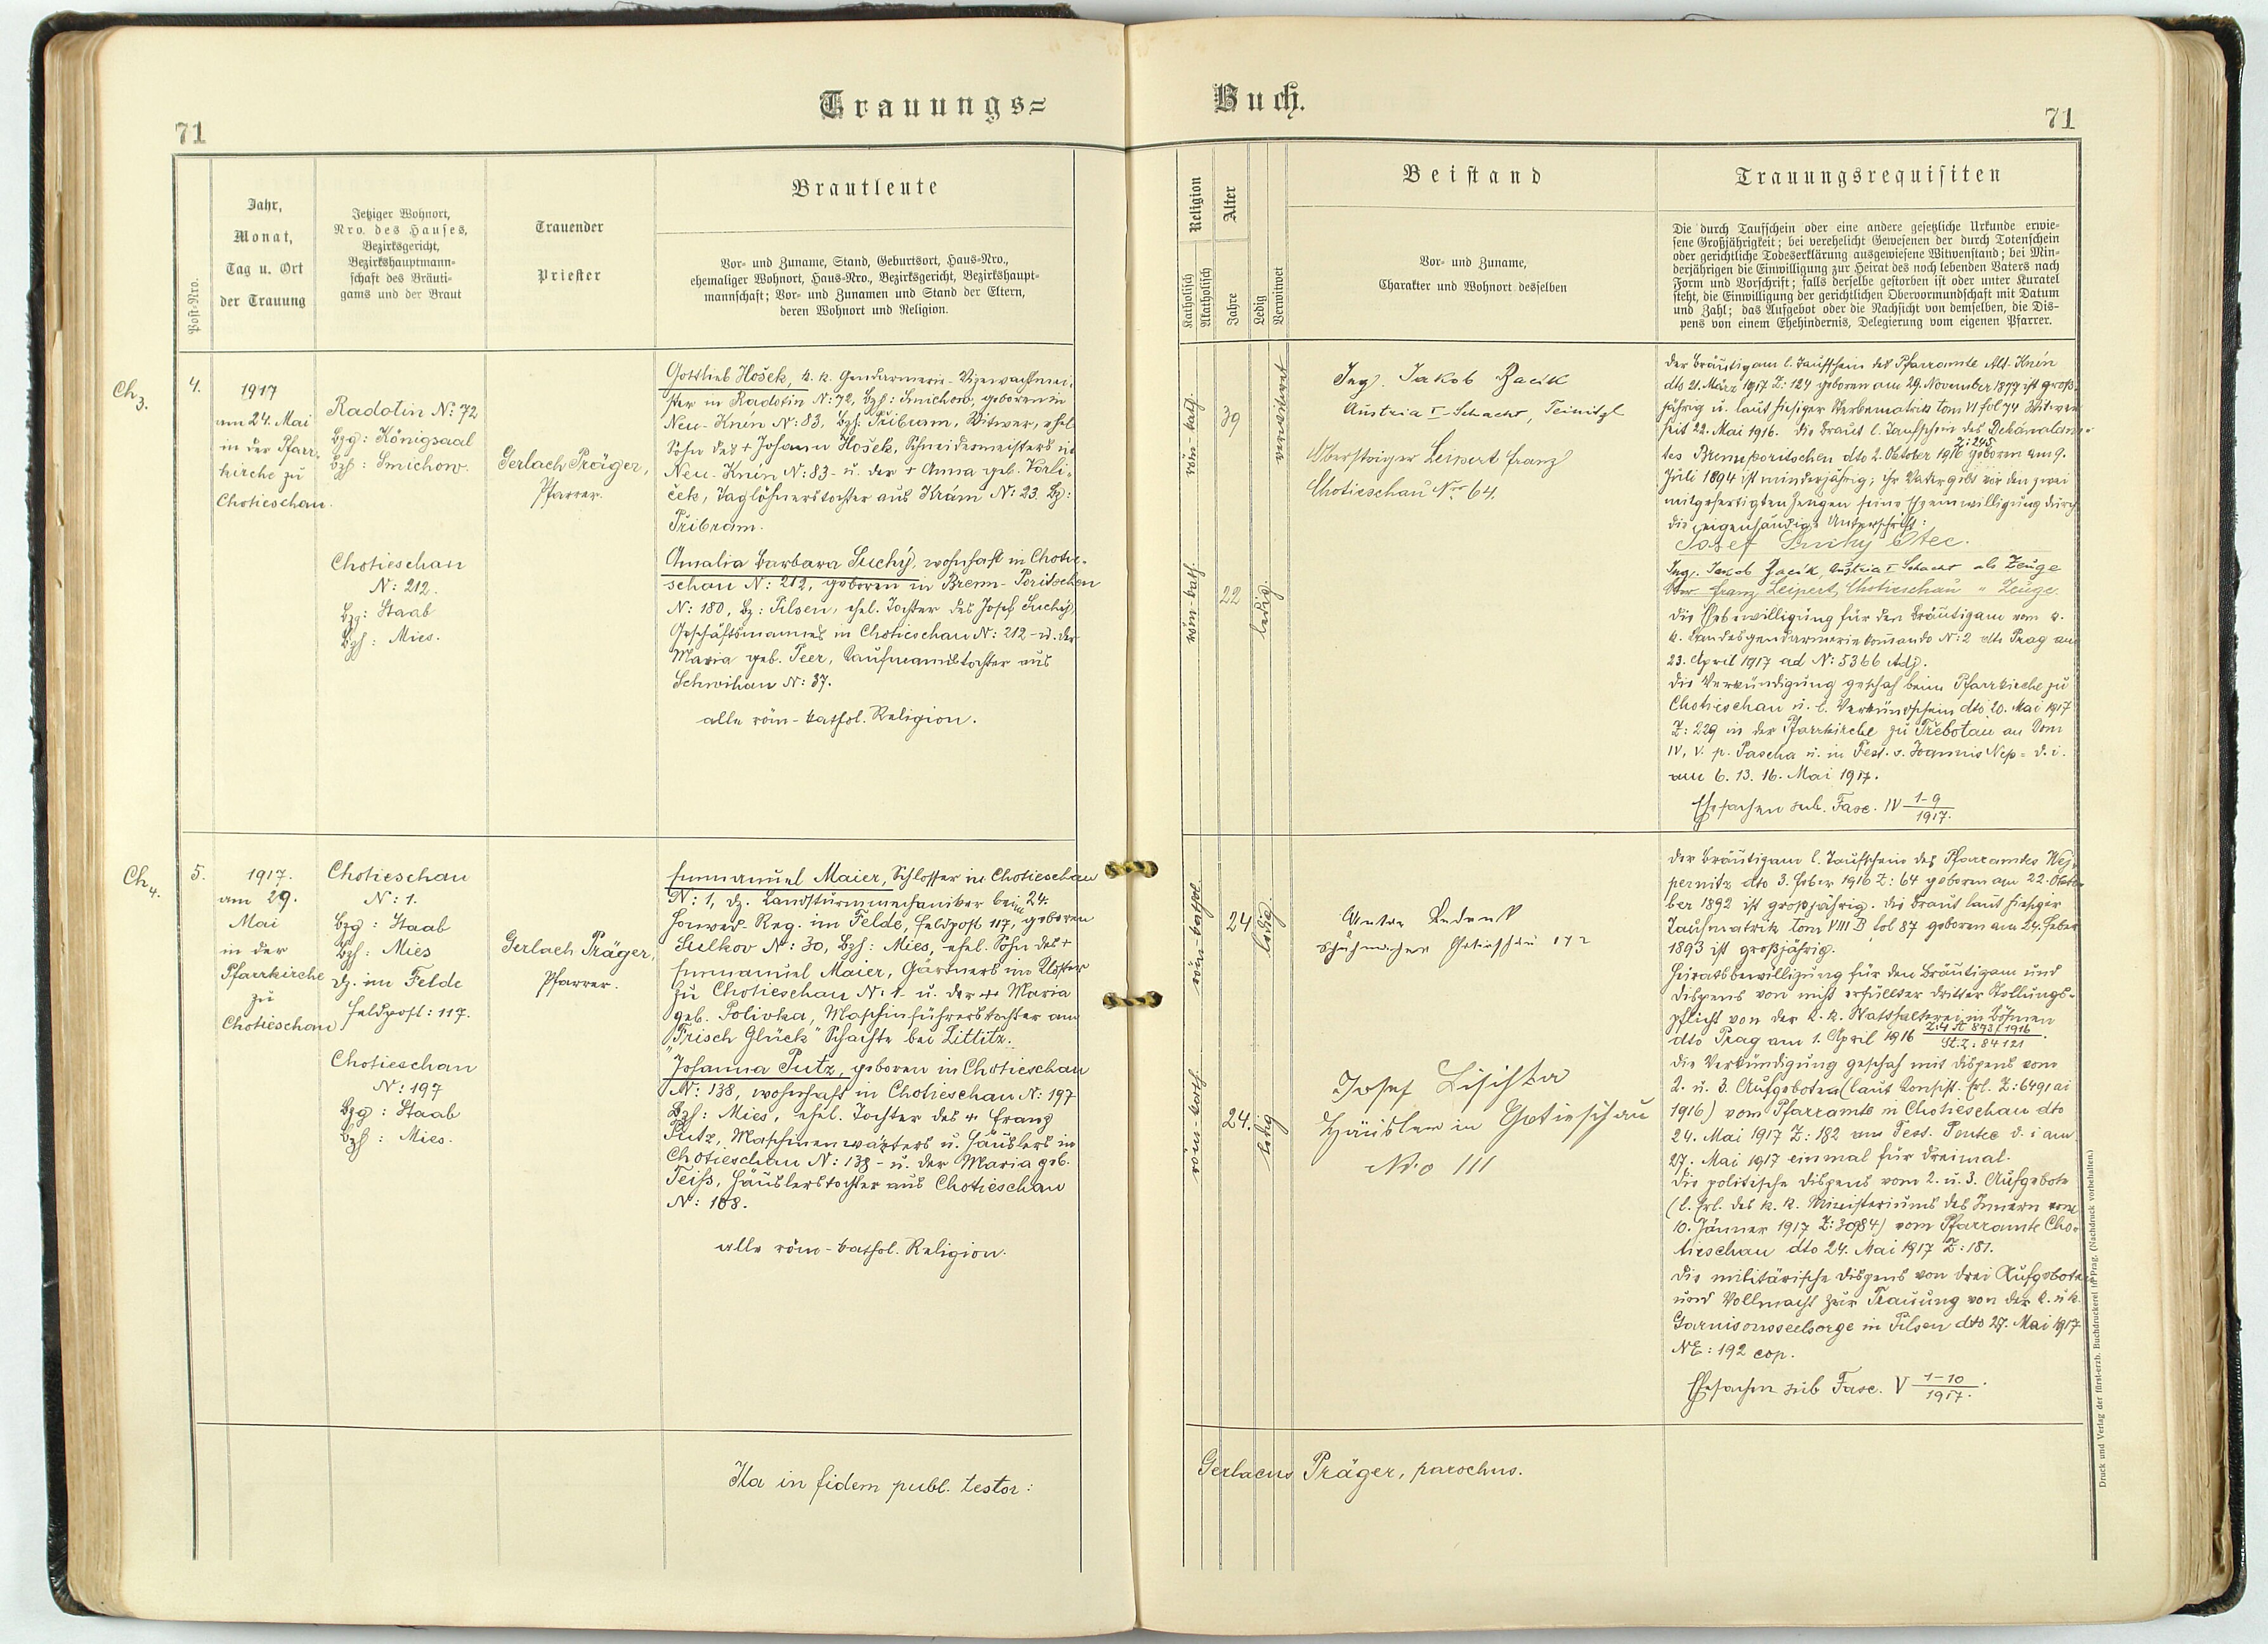 Trauungs=
Buch.
71
71
Post-Nro.
Jahr,
Monat,
Tag u. Ort
der Trauung
Jetziger Wohnort,
Nro. des Hauses,
Bezirksgericht,
Bezirkshauptmann-
schaft des Bräuti-
gams und der Braut
Trauender
Priester
Brautleute
Vor- und Zuname, Stand, Geburtsort, Haus-Nro.,
ehemaliger Wohnort, Haus-Nro., Bezirksgericht, Bezirkshaupt-
mannschaft; Vor- und Zunamen und Stand der Eltern,
deren Wohnort und Religion.
Religion
Katholisch
Akatholisch
Alter
Jahre
Ledig
Verwitwet
Beistand
Vor- und Zuname,
Charakter und Wohnort desselben
Trauungsrequisiten
Die durch Taufschein oder eine andere gesetzliche Urkunde erwie-
sene Großjährigkeit; bei verehelicht Gewesenen der durch Totenschein
oder gerichtliche Todeserklärung ausgewiesene Witwenstand; bei Min-
derjährigen die Einwilligung zur Heirat des noch lebenden Vaters nach
Form und Vorschrift; falls derselbe gestorben ist oder unter Kuratel
steht, die Einwilligung der gerichtlichen Obervormundschaft mit Datum
und Zahl; das Aufgebot oder die Nachsicht von demselben, die Dis-
pens von einem Ehehindernis, Delegierung vom eigenen Pfarrer.
Ch 3.
4.
1917
am 24. Mai
in der Pfarr-
kirche zu
Chotieschau.
Radotin N: 72
Bzg: Königsaal
Bzh: Smichow.
Chotieschau
N: 212.
Bzg: Staab
Bzh: Mies.
Gerlach Präger,
Pfarrer.
Gottlieb Hošek, k. k. Gendarmerie-Vizewachtmei-
ster in Radotin N: 72, Bzh: Smichow, geboren in
Neu-Knín N: 83, Bzh: Příbram, Witwer, ehel.
Sohn des + Johann Hošek, Schneidermeisters in
Neu-Knín N: 83 - u. der + Anna geb.
ček, Taglöhnerstochter aus Krám N: 23. Bz:
Příbram.
Amalia Barbara Suchý, wohnhaft in Chotie-
schau N: 212, geboren in Brenn-Poritschen
N: 180, Bz: Pilsen, ehel. Tochter des Josef Suchý,
Geschäftsmannes in Chotieschau N: 212 - u. der
Maria geb. Peer, Kaufmannstochter aus
Schwihau N: 37.
alle röm-kathol. Religion.
röm-kath.
39
verwitwet
röm-kath.
22
ledig.
Ing. Jakob Žacík
Austria I-Schacht, Teinitzl
Obersteiger Leipert Franz
Chotieschau Nro 64.
der Bräutigam l. Taufschein des Pfarramte Alt-Knín
dto 21. März 1917 Z: 124 geboren am 29. November 1877 ist groß-
jährig u. laut hiesiger Sterbematrik tom VI fol 74 Witwer
seit 22. Mai 1916. Die Braut l. Taufschein des Dekanalam-
tes Brennporitschen dto 2. Oktober 1916 Z: 245 geboren am 9.
Juli 1894 ist minderjährig; ihr Vater gibt vor den zwei
mitgefertigten Zeugen seine Eheeinwilligung durch
die eigenhändige Unterschrift:
Josef Suchý Otec.
Ing. Jakob Žacík, Austria I Schacht als Zeuge
Franz Leipert, Chotieschau " Zeuge.
die Ehebewilligung für den Bräutigam vom k.
k. Landesgendarmeriekomando N: 2 dto Prag am
23. April 1917 ad N: 5366 Adj.
die Verkündigung geschah beim Pfarrkirche zu
Chotieschau u. l. Verkündschein dto 20. Mai 1917
Z: 229 in der Pfarrkirche zu Třebotau an Dom
IV, V. p. Pascha u. in Fest. s. Joannis Nep = d. i.
am 6. 13. 16. Mai 1917.
Ehesachen sub. Fasc. IV 1-9/1917.
Ch 4.
5.
1917.
am 29.
Mai
in der
Pfarrkirche
zu
Chotieschau
Chotieschau
N: 1.
Bzg: Staab
Bzh: Mies
dz. im Felde
Feldpost: 117.
Chotieschau
N: 197
Bzg: Staab
Bzh: Mies.
Gerlach Präger,
Pfarrer.
Emmanuel Maier, Schlosser in Chotieschau
N: 1, dz. Landsturmmechaniker beim 24.
Honwed-Reg. im Felde, Feldpost 117, geboren
Sulkov N: 30, Bzh: Mies, ehel. Sohn des +
Emmanuel Maier, Gärtners im Kloster
zu Chotieschau N: 1 - u. der + Maria
geb. Polivka, Maschinführerstochter am
"Frisch Glück" Schachte bei Littitz.
Johanna Putz, geboren in Chotieschau
N: 138, wohnhaft in Chotieschau N: 197
Bzh: Mies, ehel. Tochter des + Franz
Putz, Maschinenwärters u. Häuslers in
Chotieschau N: 138 - u. der Maria geb.
Teiß, Häuslerstochter aus Chotieschau
N: 108.
alle röm-kathol. Religion.
röm-kathol.
24
ledig
röm-kath.
24.
ledig
Anton
Schuhmacher Chotieschau 172
Josef Lisichta
Häusler in Chotieschau
Nro 111
der Bräutigam l. Taufschein des Pfarramtes Wej-
pernitz dto 3. Feber 1916 Z: 64 geboren am 22. Okto-
ber 1892 ist großjährig. die Braut laut hiesiger
Taufmatrik tom VIII B fol 87 geboren am 24. Feber
1893 ist großjährig.
Heiratsbewilligung für den Bräutigam und
Dispens von nicht erfüllter dritter Stellungs-
pflicht von der k. k. Statthalterei in Böhmen
dto Prag am 1. April 1916 Z: 4 A 893/1916 / St. Z: 84121.
die Verkündigung geschah mit Dispens vom
2. u. 3. Aufgebote (laut Konsist. Erl. Z: 6491 ai
1916) vom Pfarramte in Chotieschau dto
24. Mai 1917 Z: 182 am Fest. Pentec d. i am
27. Mai 1917 einmal für dreimal.
die politische Dispens vom 2. u. 3. Aufgebote
(l. Erl. des k. k. Ministeriums des Innern vom
10. Jänner 1917 Z: 3084) vom Pfarramte Cho-
tieschau dto 24. Mai 1917 Z: 181.
die militärische Dispens von drei Aufgeboten
und Vollmacht zur Trauung von der k. u k.
Garnisonsseelsorge in Pilsen dto 27. Mai 1917
NE: 192 cop.
Ehesachen sub Fasc. V 1-10/1917.
Ita in fidem publ. testor:
Gerlacus Präger, parochus.
Druck und Verlag der fürst-erzb. Buchdruckerei in Prag. (Nachdruck vorbehalten.)